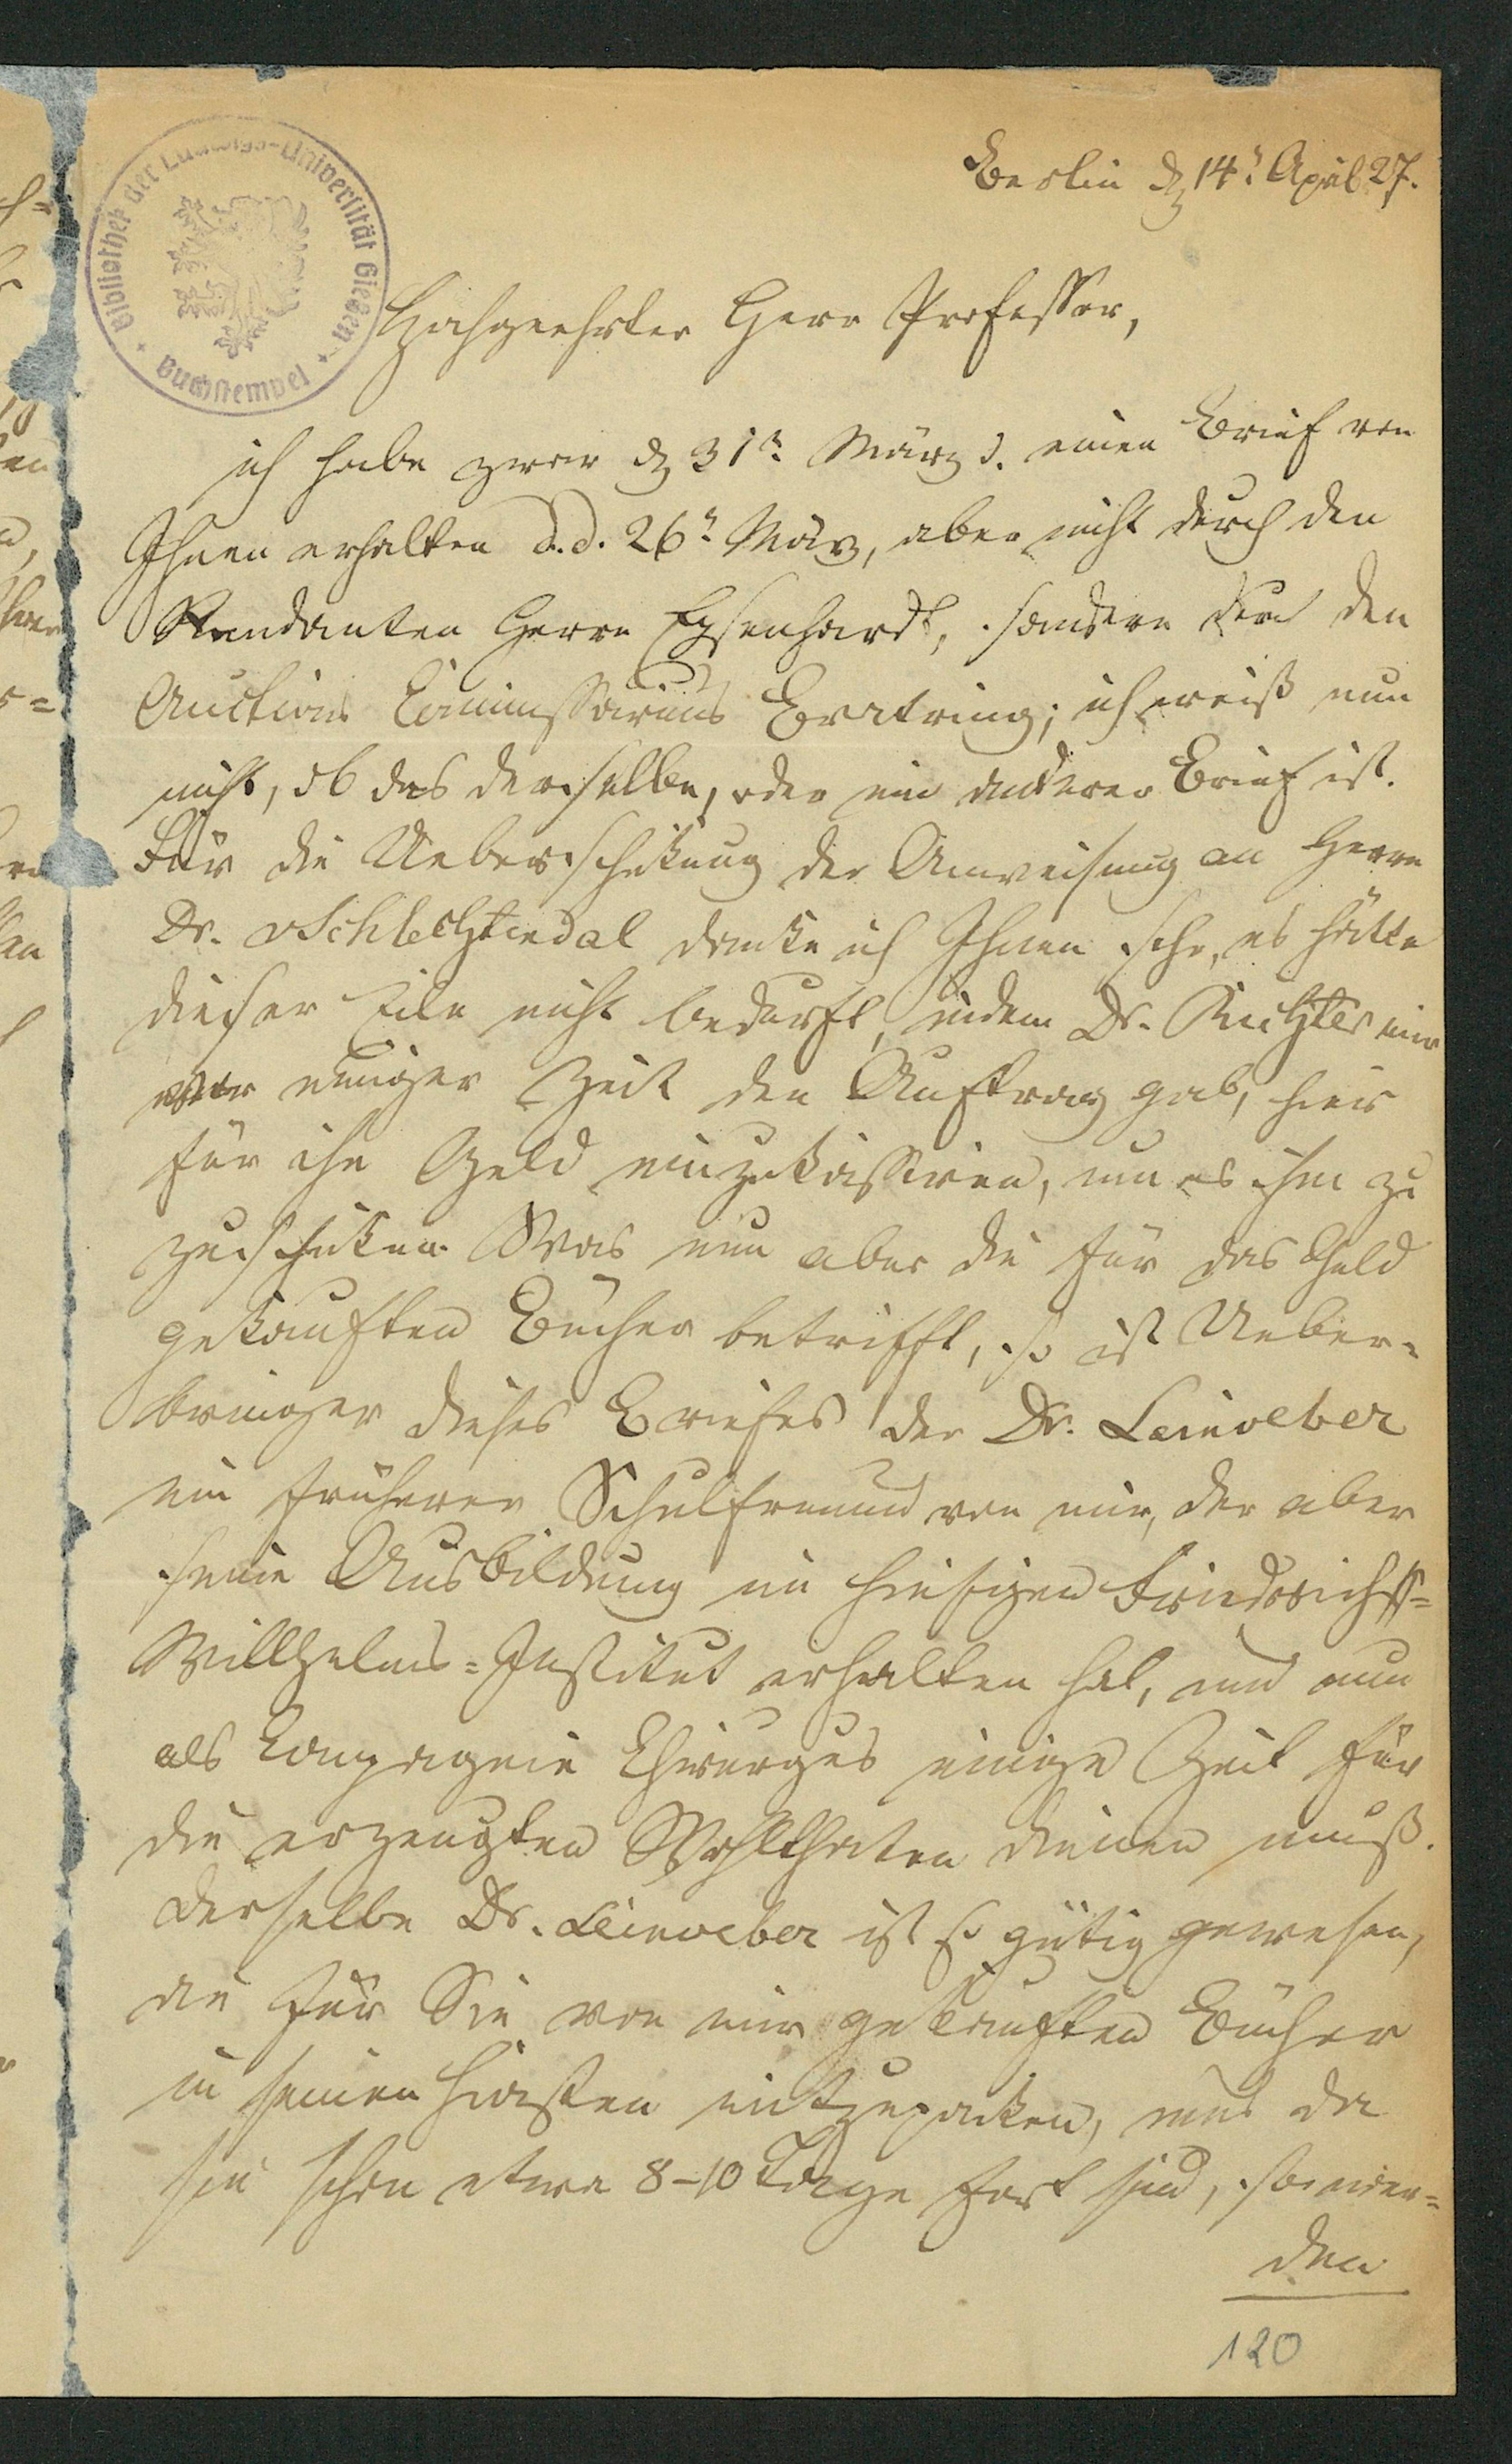 Bibliothek der Ludwigs-Universität Gießen
Buchstempel
Berlin d 14t April 27.
Hochgeehrter Herr Professor,
ich habe zwar d 31n März d. einen Brief von
Ihnen erhalten d.d. 26t März, aber nicht durch den
Rendanten Herrn Eysenhardt, sondern durch den
Auctions Commissarius Bratring; ich weiß nun
nicht, ob das derselbe, oder ein anderer Brief ist.
Für die Ueberschikung der Anweisung an Herrn
Dr. v Schlechtendal danke ich Ihnen sehr, es hätte
dieser Eile nicht bedurft, indem Dr. Richter mir
vor einiger Zeit den Auftrag gab, hier
für ihn Geld einzukassiren, um es ihm zu
zuschiken. Was nun aber die für das Geld
gekauften Bücher betrifft, so ist Ueber-
bringer dieses Briefes der Dr. Leinveber
ein früherer Schulfreund von mir, der aber
seine Ausbildung im hiesigen Friedrichs-
Willhelms-Institut erhalten hat, und nun
als Compagnie Chirurgus einige Zeit für
die erzeugten Wohlthaten dienen muß.
Derselbe Dr. Leinveber ist so gütig gewesen,
die für Sie von mir gekauften Bücher
in seinen Kasten mitzupaken, und da
sie schon etwa 8-10 Tage fort sind, so wer-
den
120